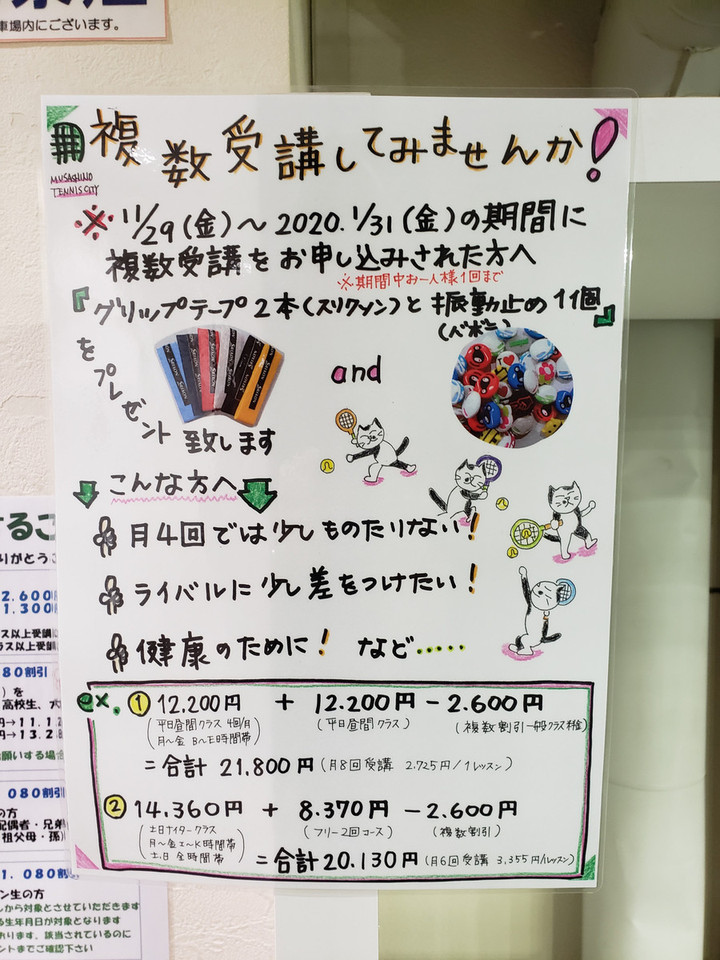 車場内にございます。
複数受講してみませんか!
MUSASHINO
TENNIS CITY
※ 11/29(金)～2020.1/31(金)の期間に
複数受講をお申し込みされた方へ
※期間中お一人様1回まで
『グリップテープ2本(スリクソン)と振動止め1個』
(バボラ)
をプレゼント致します
and
こんな方へ
月4回では少しものたりない!
ライバルに少し差をつけたい!
健康のために! など.....
ex. ① 12,200円 + 12,200円 - 2,600円
(平日昼間クラス 4回/月 (平日昼間クラス) (複数割引一般クラス料金)
月～金 B～E時間帯)
= 合計 21,800円 (月8回受講 2,725円/1レッスン)
② 14,360円 + 8,370円 - 2,600円
(土日ナイタークラス (フリー2回コース) (複数割引)
月～金 I～K時間帯
土、日 全時間帯)
= 合計20,130円 (月6回受講 3,355円/レッスン)
するご
りがとう
2,600
1,300
ス以上受講
ラス以上受講
080割引
)を
高校生、大
円→11,1
円→13,2
願いする場合
080割引
の方
配偶者・兄弟
祖父母・孫)
1,080割
ン生の方
しから対象とさせていただきます
る生年月日が対象となります
あります。該当されているのに
ントまでご確認下さい